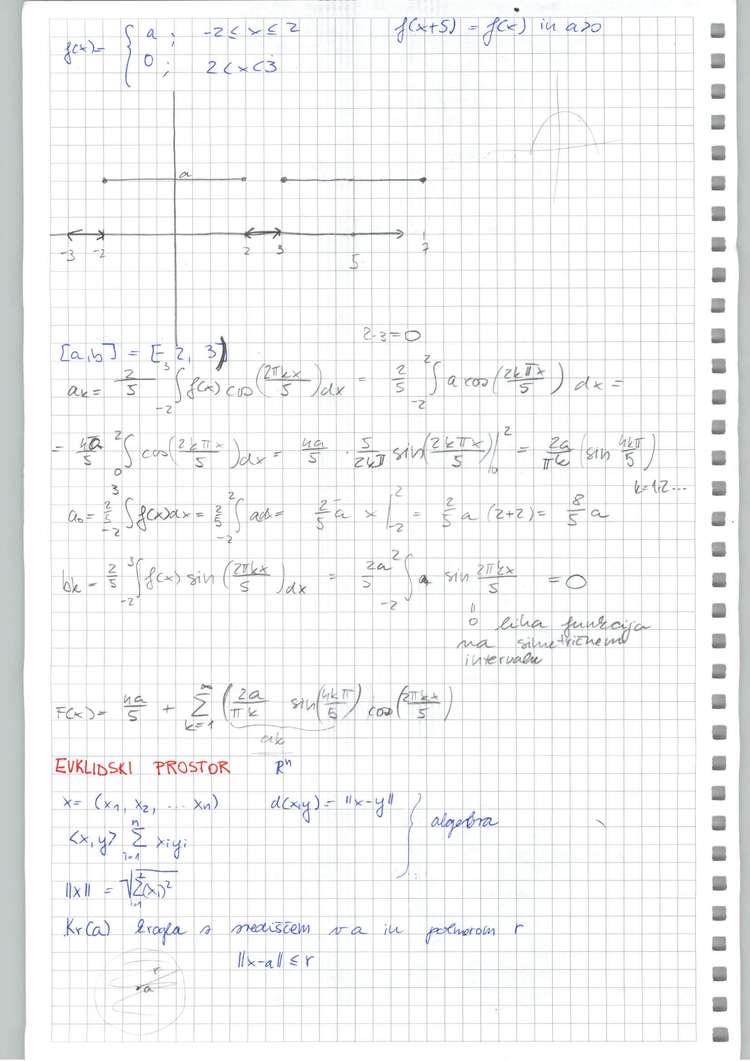 f(x) = { a ; -2 ≤ x ≤ 2    f(x+5) = f(x) in a>0
0 ; 2 < x < 3
a
-3 -2 2 3 5 7
2-3=0
[a,b] = [-2, 3)
a_k = 2/5 ∫_{-2}^{3} f(x) cos(2πkx/5) dx = 2/5 ∫_{-2}^{2} a cos(2kπx/5) dx =
= 4a/5 ∫_0^2 cos(2kπx/5) dx = 4a/5 · 5/2kπ sin(2kπx/5) |_0^2 = 2a/πk (sin 4kπ/5)
k=1,2...
a_0 = 2/5 ∫_{-2}^{3} f(x) dx = 2/5 ∫_{-2}^{2} a dx = 2/5 a x |_{-2}^{2} = 2/5 a (2+2) = 8/5 a
b_k = 2/5 ∫_{-2}^{3} f(x) sin(2πkx/5) dx = 2a/5 ∫_{-2}^{2} sin 2πkx/5 = 0
"
0 liha funkcija
na simetričnem
intervalu
F(x) = 4a/5 + ∑_{k=1}^{∞} (2a/πk sin(4kπ/5) cos(2πkx/5))
ak
EVKLIDSKI PROSTOR R^n
x = (x_1, x_2, ... x_n)    d(x,y) = ||x-y||    } algebra
<x,y> ∑_{i=1}^{n} x_i y_i
||x|| = √(∑_{i=1}^{n} (x_i)^2)
Kr(a) krogla s središčem v a in polmerom r
||x-a|| ≤ r
r
a